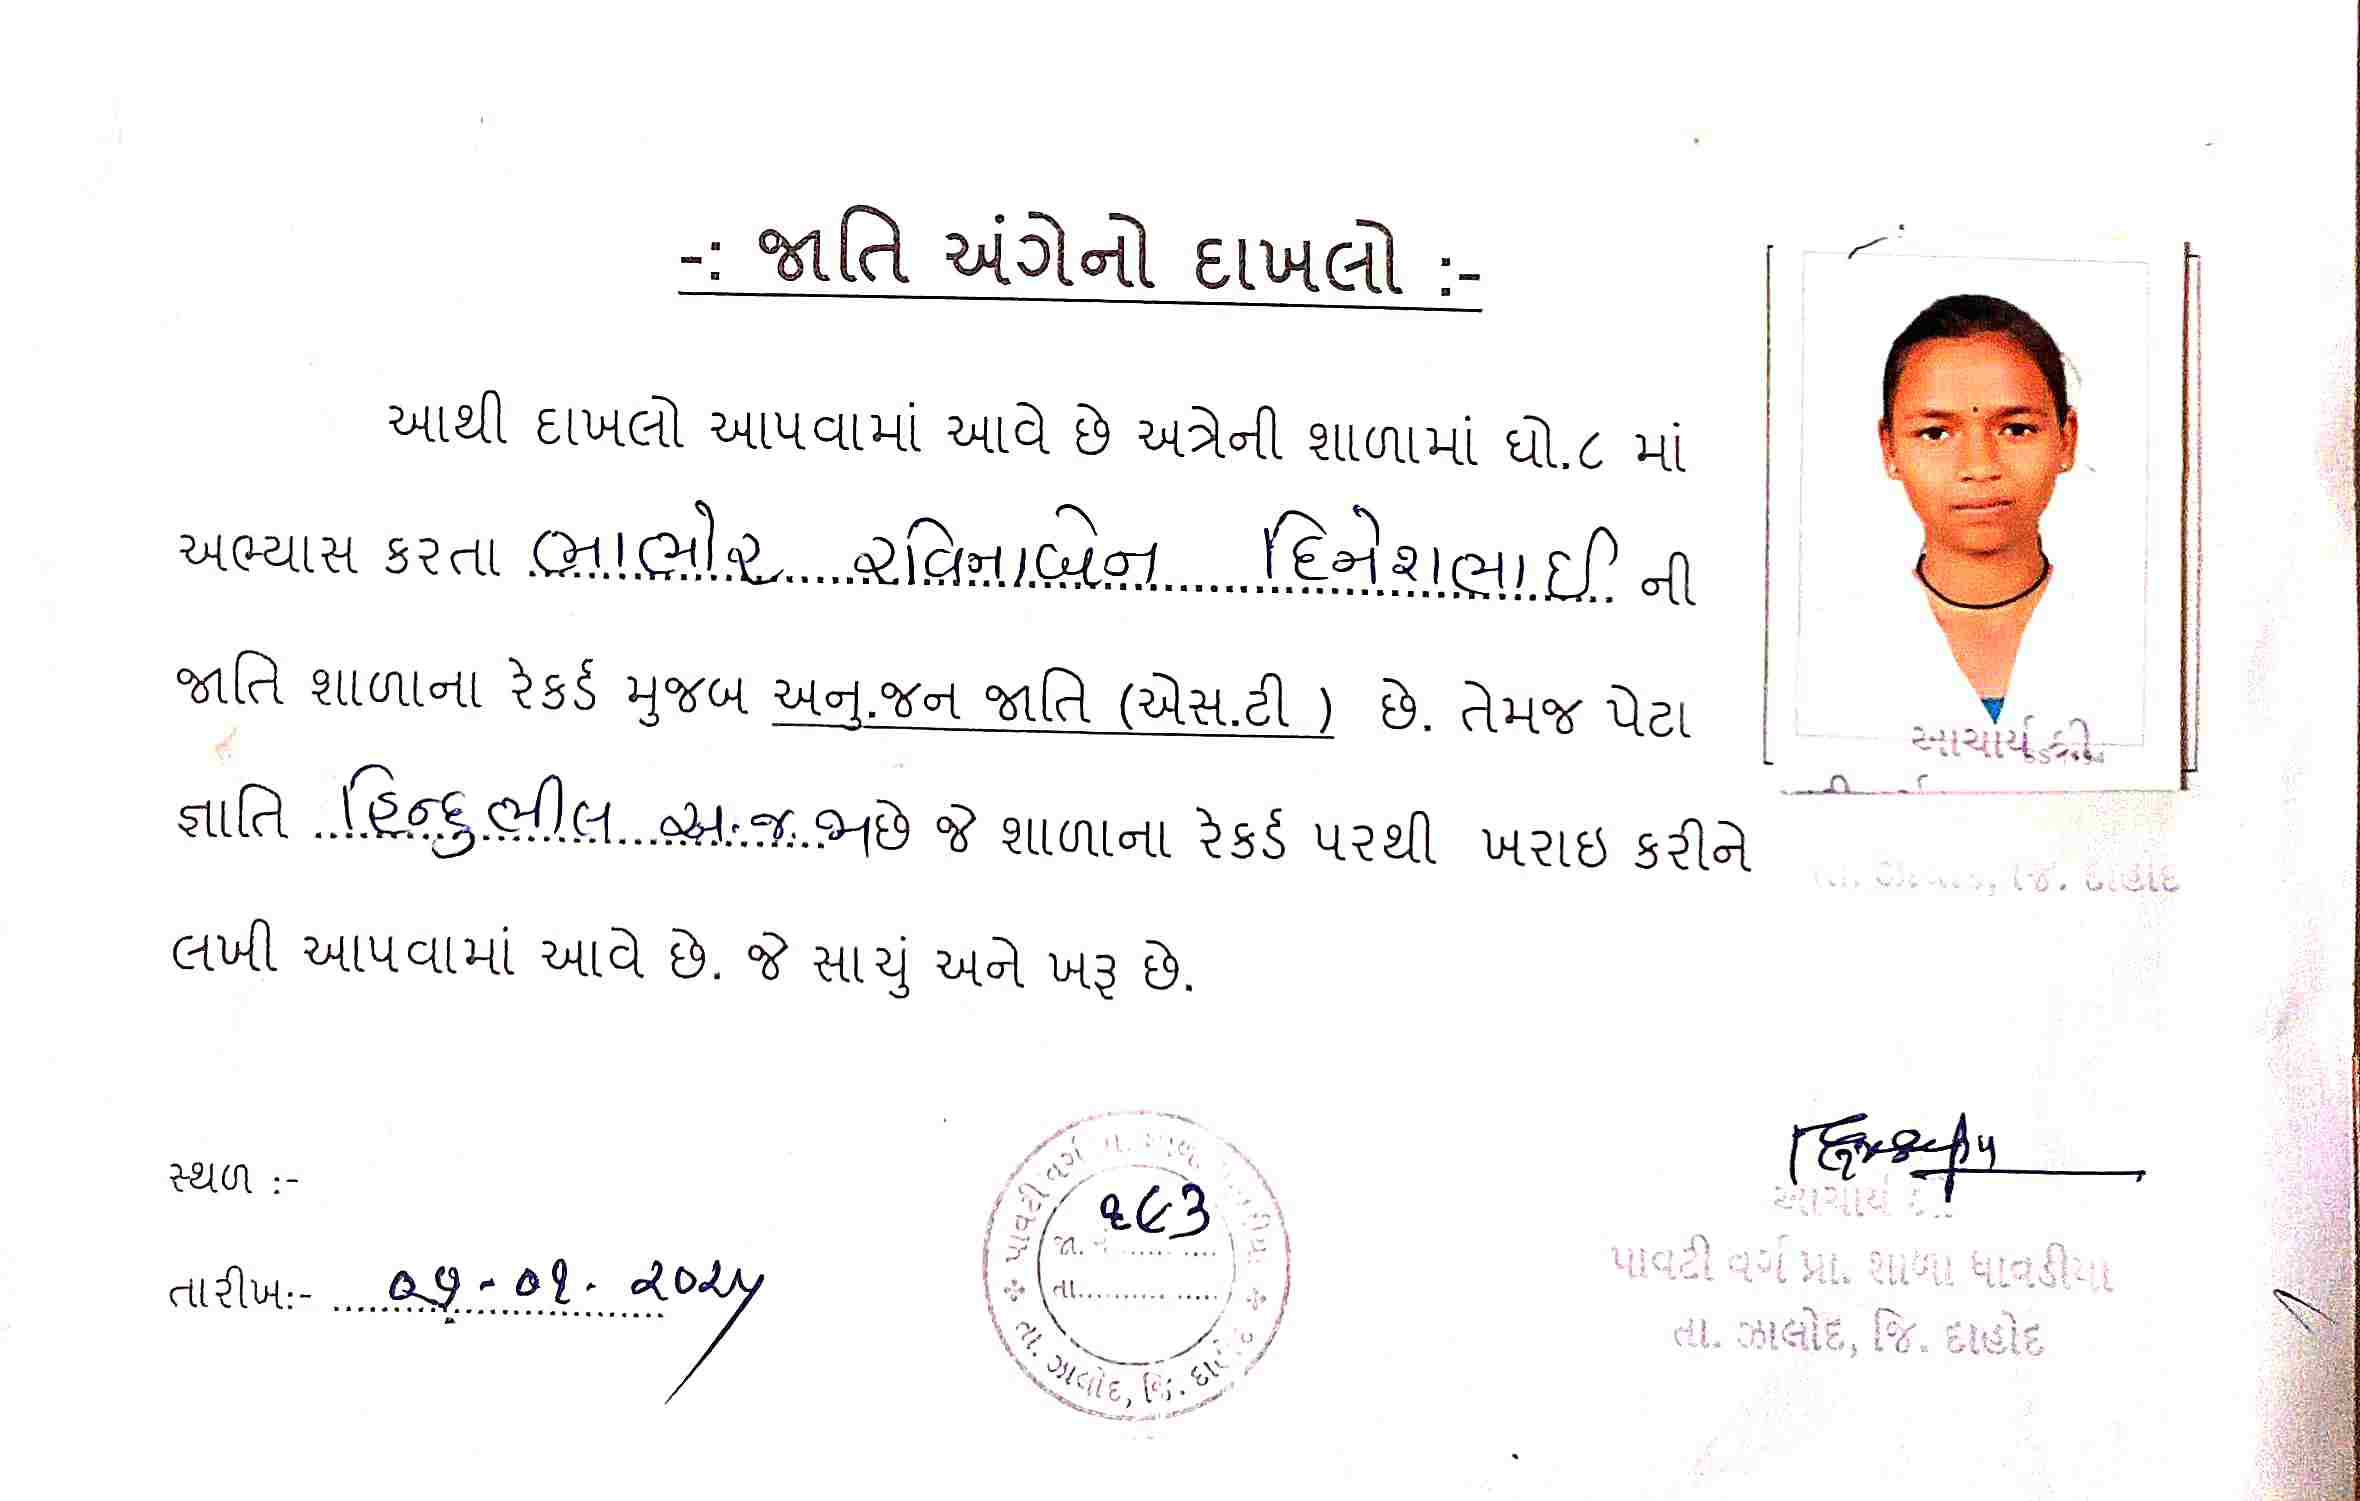 -: જાતિ અંગેનો દાખલો :-
આથી દાખલો આપવામાં આવે છે અત્રેની શાળામાં ધો.૮ માં
અભ્યાસ કરતા ભાભોર રવિનાબેન દિનેશભાઈ ની
જાતિ શાળાના રેકર્ડ મુજબ અનુ.જન જાતિ (એસ.ટી ) છે. તેમજ પેટા
જ્ઞાતિ હિન્દુ ભીલ અ.જ.જ છે જે શાળાના રેકર્ડ પરથી ખરાઇ કરીને
લખી આપવામાં આવે છે. જે સાચું અને ખરૂ છે.
આચાર્યશ્રી
તા. ઝાલોદ, જિ. દાહોદ
સ્થળ :-
તારીખઃ- ૦૭-૦૧-૨૦૨૫
પાવટી વર્ગ
૧૮૩
જા. નં
તા.
તા. ઝાલોદ, જિ. દાહોદ
આચાર્ય શ્રી
પાવટી વર્ગ પ્રા. શાળા ધાવડીયા
તા. ઝાલોદ, જિ. દાહોદ